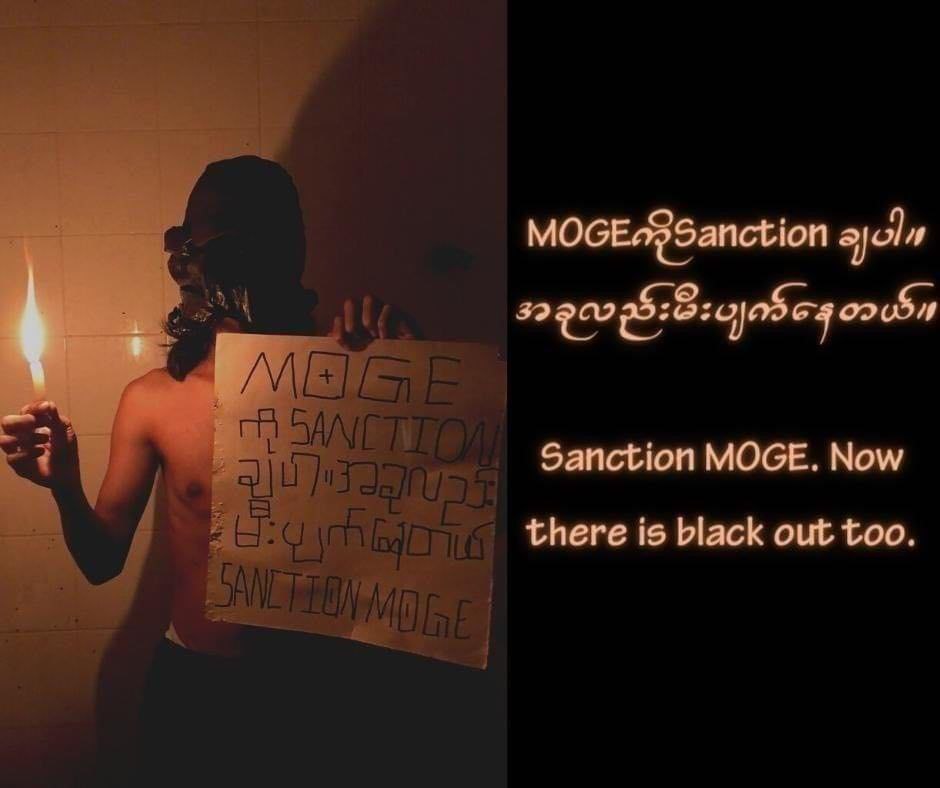 MOGE
ကို SANCTION
ချပါ။ အခုလည်း
မီးပျက်နေတယ်
SANCTION MOGE
MOGEကိုSanction ချပါ။
အခုလည်းမီးပျက်နေတယ်။
Sanction MOGE. Now
there is black out too.